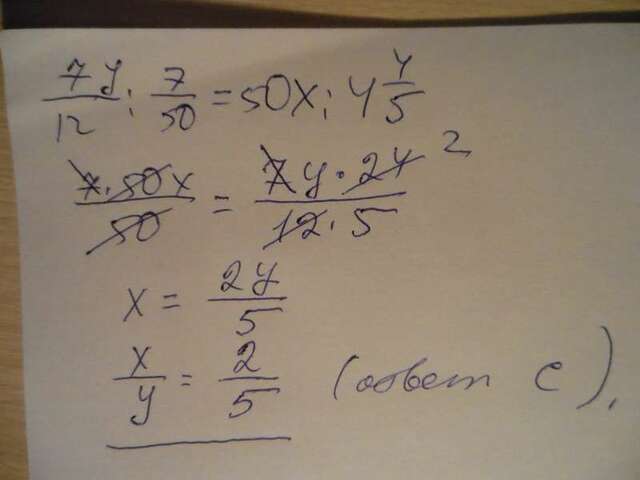 7y/12 : 7/50 = 50x : 4 4/5
7·50x/50 = 7y·24/12·5 2
x = 2y/5
x/y = 2/5 (ответ с).